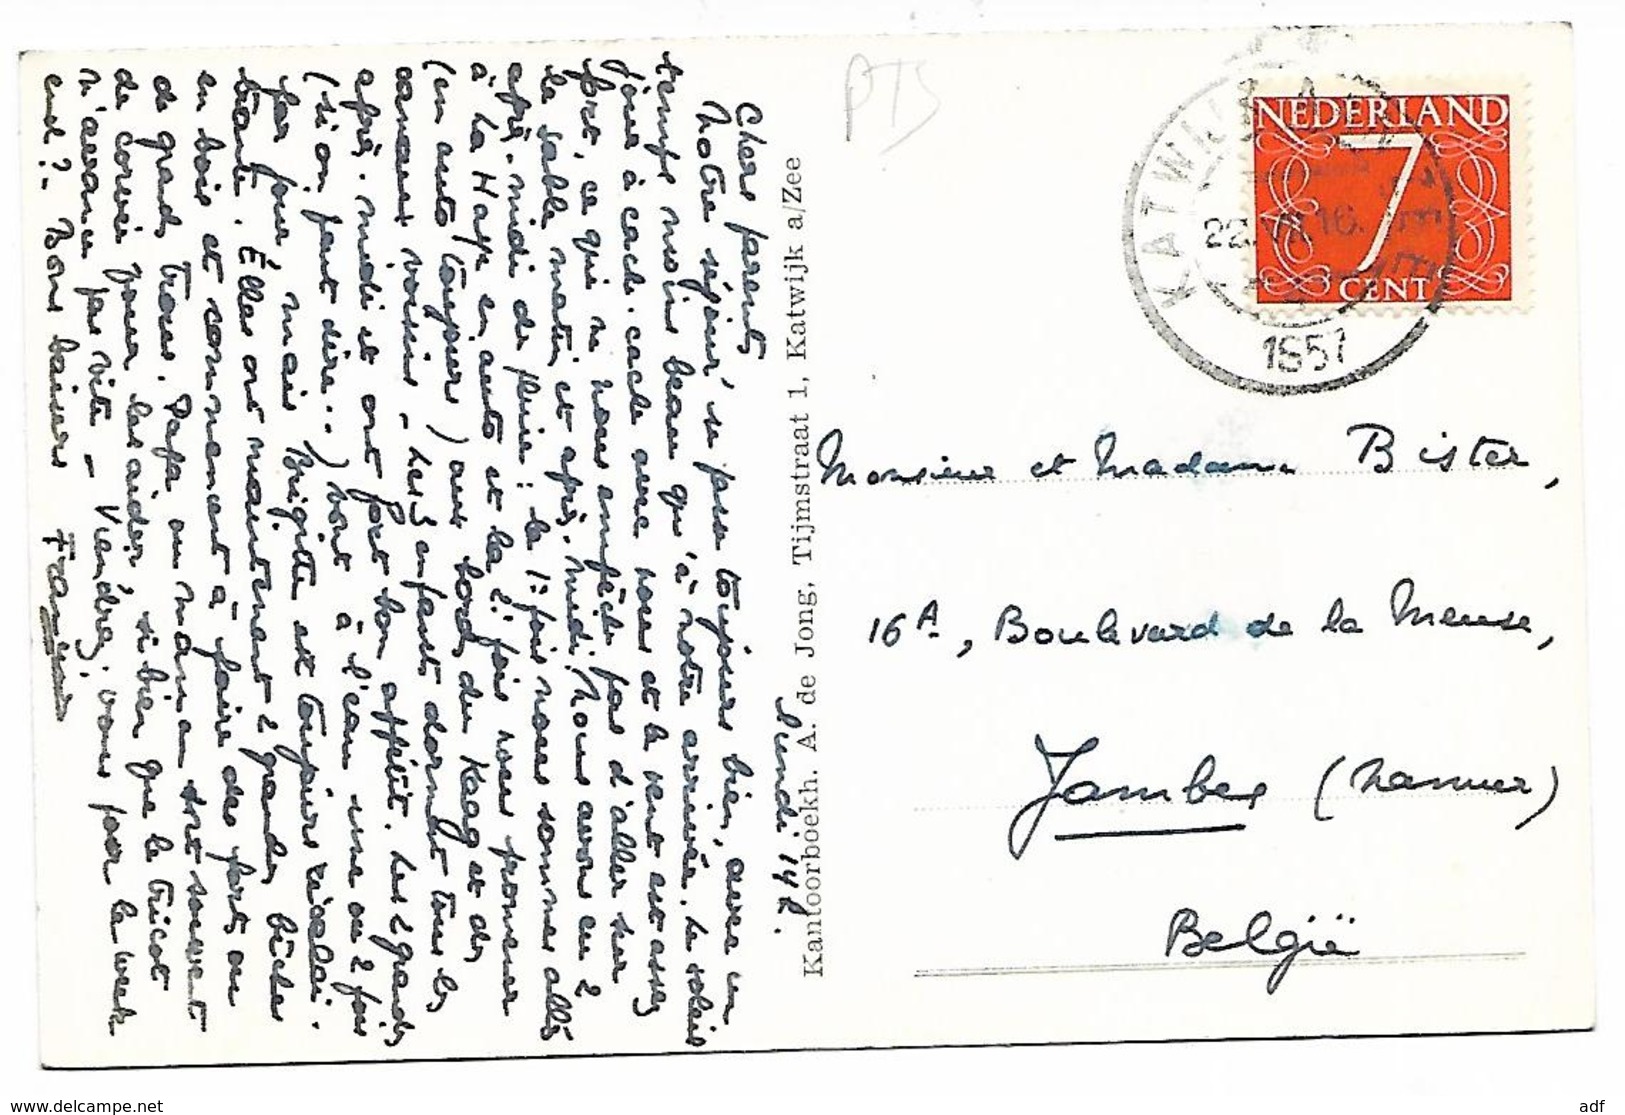 Lundi 14 h.
Chers parents
Notre séjour se passe toujours bien, avec un
temps moins beau qu'à notre arrivée. Le soleil
joue à cache-cache avec nous et le vent est assez
fort, ce qui ne nous empêche pas d'aller sur
le sable matin et après-midi. Nous avons eu 2
après-midi de pluie : la 1e fois nous sommes allés
à La Haye en auto et la 2e fois nous promener
(en auto toujours) aux bords du Kaag et des
canaux voisins - Les enfants dorment tous les
après-midi et ont fort bon appétit. Les 2 grands
(si on peut dire..) vont à l'eau une ou 2 fois
par jour, mais Brigitte est toujours
. Elles ont maintenant 2 grandes bêches
en bois et commencent à faire des forts ou
de grands trous. Papa ou maman sont souvent
de corvée pour les aider, si bien que le tricot
n'avance pas vite - Viendrez-vous pour le week
end ? - Bons baisers
PTS
Kantoorboekh. A. de Jong, Tijmstraat 1, Katwijk a/Zee
NEDERLAND
7
CENT
KATWIJK
22 VII 16
1957
Monsieur et Madame Bister,
16A, Boulevard de la Meuse,
Jambes (Namur)
België
delcampe.net
adf